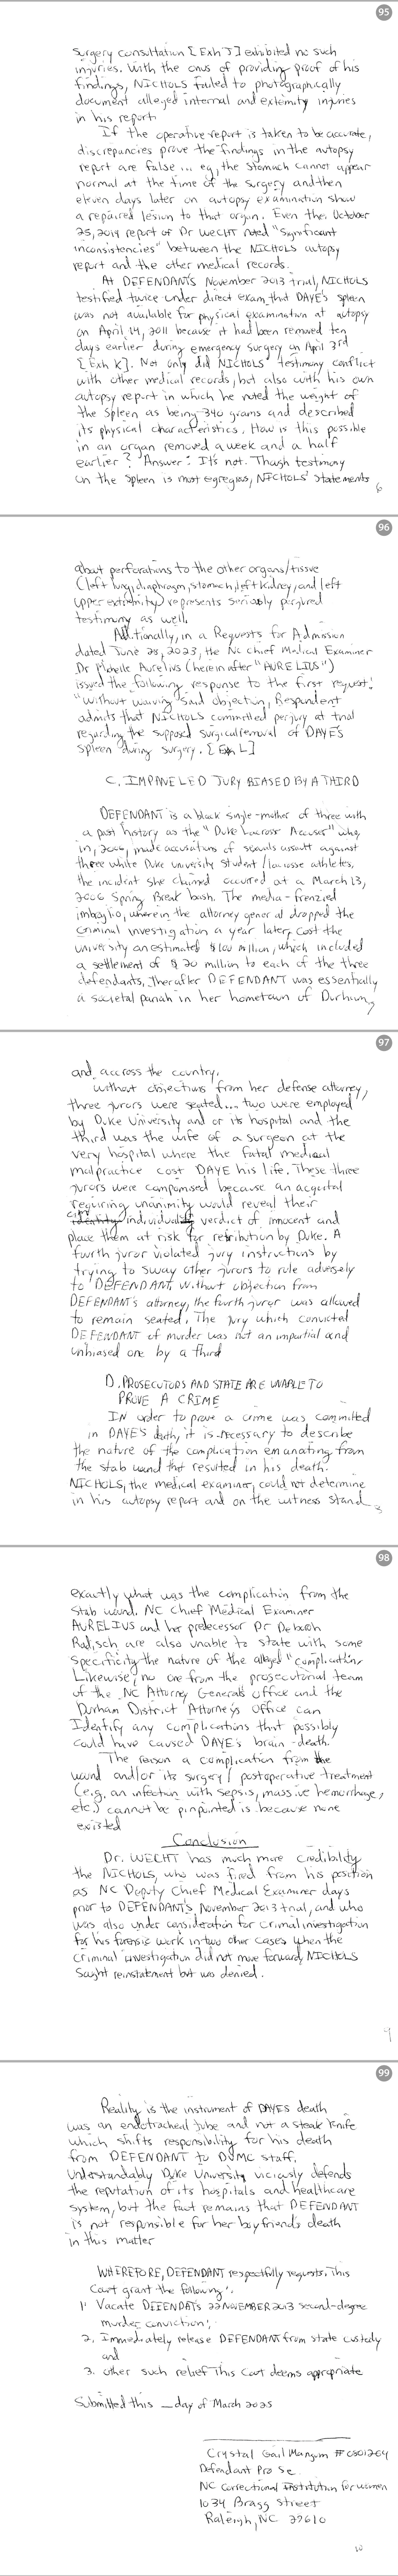 95
Surgery consultation [Exh J] exhibited no such
injuries. With the onus of providing proof of his
findings, NICHOLS failed to photographically
document alleged internal and extremity injuries
in his report
If the operative report is taken to be accurate,
discrepancies prove the findings in the autopsy
report are false... eg, the stomach cannot appear
normal at the time of the surgery and then
eleven days later on autopsy examination show
a repaired lesion to that organ. Even the October
25, 2019 report of Dr WECHT noted "significant
inconsistencies" between the NICHOLS autopsy
report and the other medical records.
At DEFENDANT's November 2013 trial, NICHOLS
testified twice under direct exam that DAYE's spleen
was not available for physical examination at autopsy
on April 14, 2011 because it had been removed ten
days earlier during emergency surgery on April 3rd
[Exh K]. Not only did NICHOLS' testimony conflict
with other medical records, but also with his own
autopsy report in which he noted the weight of
the spleen as being 340 grams and described
its physical characteristics. How is this possible
in an organ removed a week and a half
earlier? Answer: It's not. Though testimony
on the spleen is most egregios, NICHOLS' statements
6
96
about perforations to the other organs/tissue
(left lung, diaphragm, stomach, left kidney, and left
upper extremity) represents seriously perjured
testimony as well.
Additionally, in a Requests for Admission
dated June 25, 2023, the NC Chief Medical Examiner
Dr Michelle Aurelius (herein after "AURELIUS")
issued the following response to the first request:
"Without waiving said objection, Respondent
admits that NICHOLS committed perjury at trial
regarding the supposed surgical removal of DAYE's
spleen during surgery. [Exh L]
C. IMPANELED JURY BIASED BY A THIRD
DEFENDANT is a black single-mother of three with
a past history as the "Duke Lacross Accuser" who,
in, 2006, made accusations of sexuals assault against
three white Duke university student/lacrosse athletes,
the incident she claimed occurred at a March 13,
2006 Spring Break bash. The media-frenzied
imbroglio, wherein the attorney general dropped the
criminal investigation a year later, cost the
university an estimated $100 million, which included
a settlement of $20 million to each of the three
defendants, therafter DEFENDANT was essentially
a societal pariah in her hometown of Durham,
7
97
and accross the country.
Without objections from her defense attorney,
three jurors were seated... two were employed
by Duke University and or its hospital and the
third was the wife of a surgeon at the
very hospital where the fatal medical
malpractice cost DAYE his life. These three
jurors were compromised because an acquital
requiring unanimity would reveal their
individual verdict of innocent and
place them at risk for retribution by Duke. A
fourth juror violated jury instructions by
trying to sway other jurors to rule adversely
to DEFENDANT. Without objection from
DEFENDANT's attorney, the fourth juror was allowed
to remain seated. The jury which convicted
DEFENDANT of murder was not an impartial and
unbiased one by a third
D. PROSECUTORS AND STATE ARE UNABLE TO
PROVE A CRIME
IN order to prove a crime was committed
in DAYE's death, it is necessary to describe
the nature of the complication emanating from
the stab wound that resulted in his death.
NICHOLS, the medical examiner, could not determine
in his autopsy report and on the witness stand
98
exactly what was the complication from the
Stab wound. NC Chief Medical Examiner
AURELIUS and her predecessor Dr Deborah
Radisch are also unable to state with some
specificity the nature of the alleged "complication."
Likewise, no one from the prosecutorial team
of the NC Attorney General's office and the
Durham District Attorneys Office can
Identify any complications that possibly
could have caused DAYE's brain-death.
The reason a complication from the
wound and/or its surgery/postoperative treatment
(e.g. an infection with sepsis, massive hemorrhage,
etc.) cannot be pinpointed is because none
existed
Conclusion
Dr. WECHT has much more credibility
the NICHOLS, who was fired from his position
as NC Deputy Chief Medical Examiner days
prior to DEFENDANT's November 2013 trial, and who
was also under consideration for crimal investigation
for his forensic work in two other cases. When the
criminal investigation did not move forward, NICHOLS
sought reinstatement but was denied.
9
99
Reality is the instrument of DAYES death
was an endotracheal tube and not a steak knife
which shifts responsibility for his death
from DEFENDANT to DUMC staff.
Understandably Duke University viciously defends
the reputation of its hospitals and healthcare
system, but the fact remains that DEFENDANT
is not responsible for her boyfriend's death
in this matter
WHEREFORE, DEFENDANT respectfully requests This
Court grant the following:
1. Vacate DEFENDAT's 22 NOVEMBER 2013 second-degree
murder conviction;
2. Immediately release DEFENDANT from state custody
and
3. other such relief This Court deems appropriate
Submitted this __ day of March 2025
Crystal Gail Mangum # 0801264
Defendant Pro Se
NC Correctional Institution for women
1034 Bragg Street
Raleigh, NC 27610
10